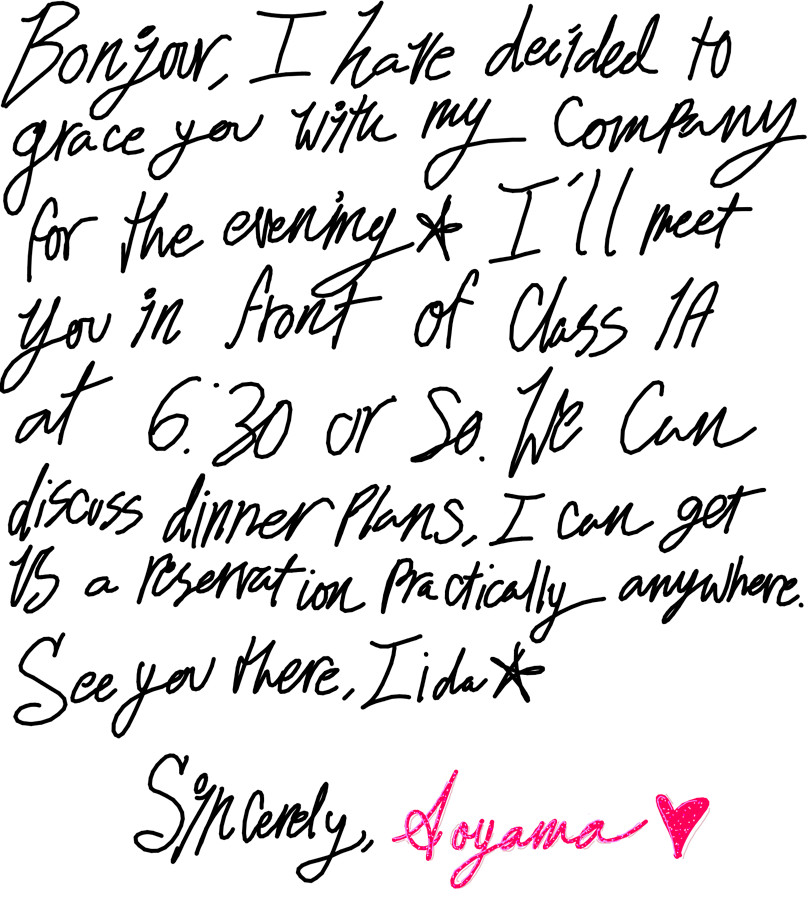 Bonjour, I have decided to
grace you with my company
for the evening☆ I'll meet
you in front of Class 1A
at 6:30 or so. We can
discuss dinner plans, I can get
us a reservation practically anywhere.
See you there, Iida☆
Sincerely, Aoyama ♥